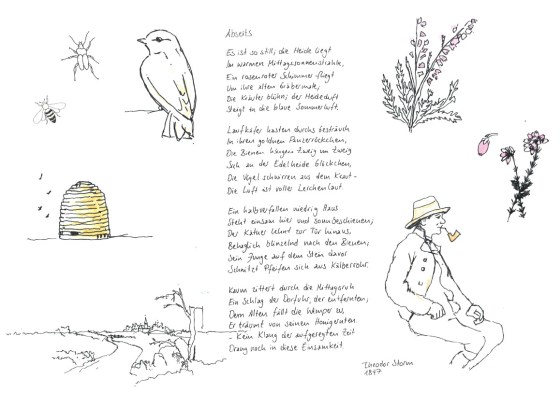 Abseits
Es ist so still; die Heide liegt
Im warmen Mittagssonnenstrahle,
Ein rosenroter Schimmer fliegt
Um ihre alten Gräbermale;
Die Kräuter blühn; der Heideduft
Steigt in die blaue Sommerluft.
Laufkäfer hasten durchs Gesträuch
In ihren goldnen Panzerröckchen,
Die Bienen hängen Zweig um Zweig
Sich an der Edelheide Glöckchen,
Die Vögel schwirren aus dem Kraut -
Die Luft ist voller Lerchenlaut.
Ein halbverfallen niedrig Haus
Steht einsam hier und sonnbeschienen;
Der Kätner lehnt zur Tür hinaus,
Behaglich blinzelnd nach den Bienen;
Sein Junge auf dem Stein davor
Schnitzt Pfeifen sich aus Kälberrohr.
Kaum zittert durch die Mittagsruh
Ein Schlag der Dorfuhr, der entfernten;
Dem Alten fällt die Wimper zu,
Er träumt von seinen Honigernten.
- Kein Klang der aufgeregten Zeit
Drang noch in diese Einsamkeit.
Theodor Storm
1847